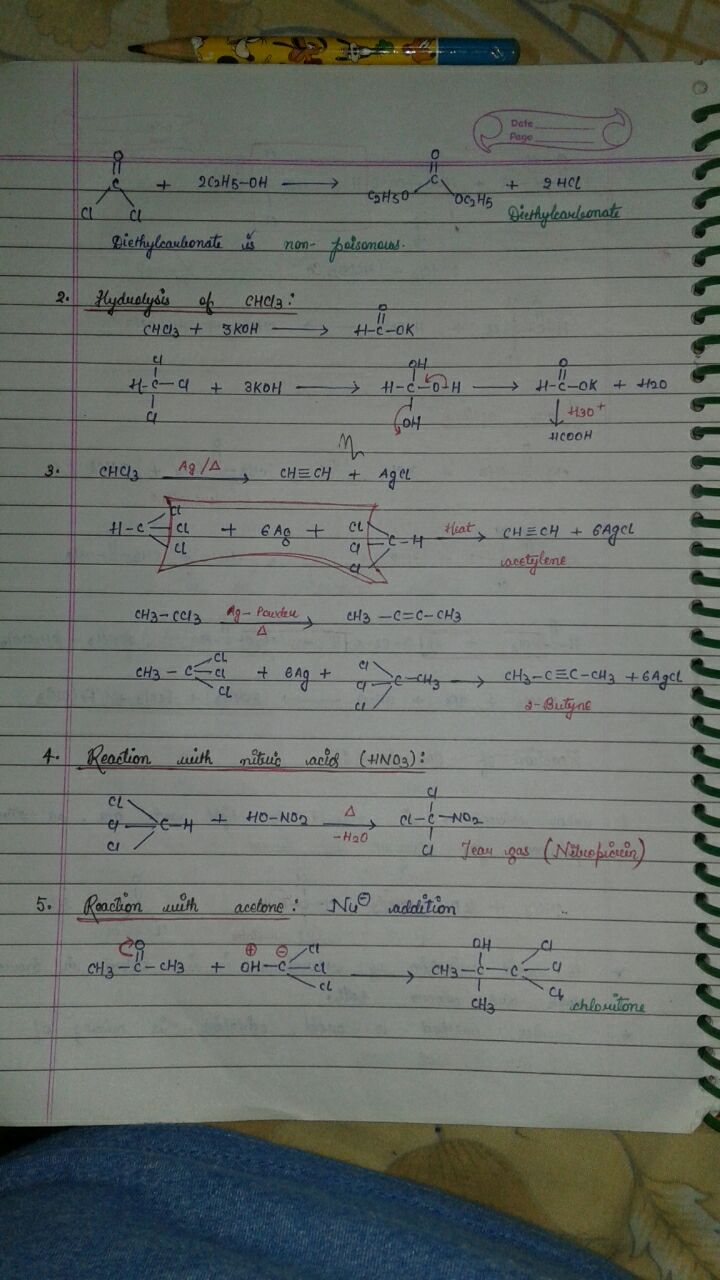 Date
Page
O
||
C
Cl Cl + 2C2H5-OH ⟶ C2H5O O || C OC2H5 + 2HCl
Diethylcarbonate
Diethylcarbonate is non-poisonous.
2. Hydrolysis of CHCl3:
CHCl3 + 3KOH ⟶ H-C-OK
O
||
Cl
H-C-Cl + 3KOH ⟶ H-C-O-H ⟶ H-C-OK + H2O
Cl OH OH O ||
↓ H3O+
HCOOH
3. CHCl3 Ag/Δ ⟶ CH≡CH + AgCl
H-C Cl Cl Cl + 6Ag + Cl Cl Cl C-H Heat ⟶ CH≡CH + 6AgCl
acetylene
CH3-CCl3 Ag-Powder Δ ⟶ CH3-C=C-CH3
CH3-C Cl Cl Cl + 6Ag + Cl Cl Cl C-CH3 ⟶ CH3-C≡C-CH3 + 6AgCl
2-Butyne
4. Reaction with nitric acid (HNO3):
Cl Cl Cl C-H + HO-NO2 Δ -H2O ⟶ Cl-C-NO2
Cl Cl
Tear gas (Nitropicrin)
5. Reaction with acetone: Nu⊖ addition
CH3-C-CH3 + OH-C Cl Cl Cl ⟶ CH3-C-C Cl Cl Cl
O || ⊕ ⊖ OH CH3
chloritone